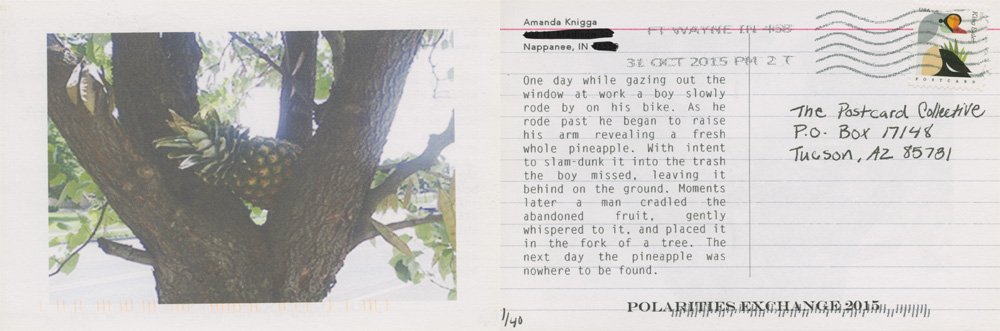 Amanda Knigga
Nappanee, IN
FT WAYNE IN 468
31 OCT 2015 PM 2 T
USA
King Eider
POSTCARD
One day while gazing out the
window at work a boy slowly
rode by on his bike. As he
rode past he began to raise
his arm revealing a fresh
whole pineapple. With intent
to slam-dunk it into the trash
the boy missed, leaving it
behind on the ground. Moments
later a man cradled the
abandoned fruit, gently
whispered to it, and placed it
in the fork of a tree. The
next day the pineapple was
nowhere to be found.
The Postcard Collective
P.O. Box 17148
Tucson, AZ 85731
POLARITIES EXCHANGE 2015
1/40